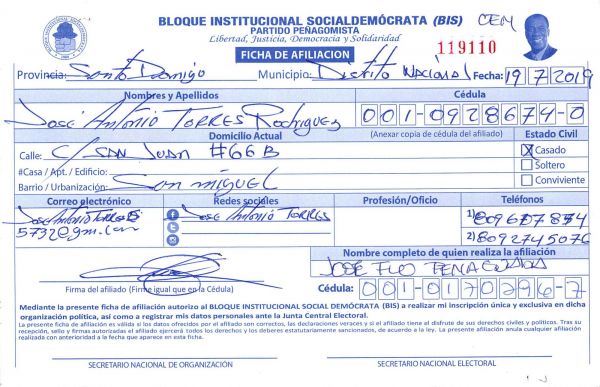 BLOQUE INSTITUCIONAL SOCIALDEMÓCRATA (BIS) CEM
PARTIDO PEÑAGOMISTA
Libertad, Justicia, Democracia y Solidaridad
FICHA DE AFILIACION
119110
Provincia: Santo Domingo Municipio: Distrito Nacional Fecha: 19/7/2019
Nombres y Apellidos Cédula
José Antonio TORRES Rodriguez 001-0928674-0
Domicilio Actual (Anexar copia de cédula del afiliado) Estado Civil
Calle: C/ SAN JUAN #66B X Casado
#Casa / Apt. / Edificio: Soltero
Barrio / Urbanización: San miguel Conviviente
Correo electrónico Redes sociales Profesión/Oficio Teléfonos
José Antonio Torres José Antonio TORRES 1)
5732@gm. 2) 8092745076
Nombre completo de quien realiza la afiliación
JOSE FLO
Firma del afiliado (Firme igual que en la Cédula) Cédula: 001-0170296-7
Mediante la presente ficha de afiliación autorizo al BLOQUE INSTITUCIONAL SOCIAL DEMÓCRATA (BIS) a realizar mi inscripción única y exclusiva en dicha
organización política, así como a registrar mis datos personales ante la Junta Central Electoral.
La presente ficha de afiliación es válida si los datos ofrecidos por el afiliado son correctos, las declaraciones veraces y si el afiliado tiene el disfrute de sus derechos civiles y políticos. Tras su
recepción, sello y firmas autorizadas el afiliado ejercerá todos los derechos y los deberes estatutariamente sancionados, de acuerdo a la ley. La presente afiliación anula cualquier afiliación
realizada con anterioridad a la fecha que aparece en esta ficha.
SECRETARIO NACIONAL DE ORGANIZACIÓN SECRETARIO NACIONAL ELECTORAL